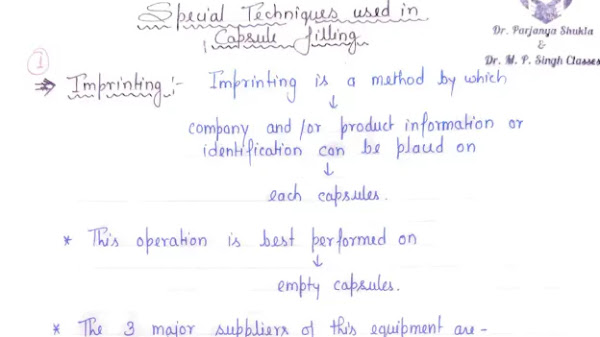 Special Techniques used in
Capsule filling
Dr. Parjanya Shukla
&
Dr. M. P. Singh Classes
1
Imprinting :- Imprinting is a method by which
↓
company and /or product information or
identification can be placed on
↓
each capsules.
* This operation is best performed on
↓
empty capsules.
* The 3 major suppliers of this equipment are -